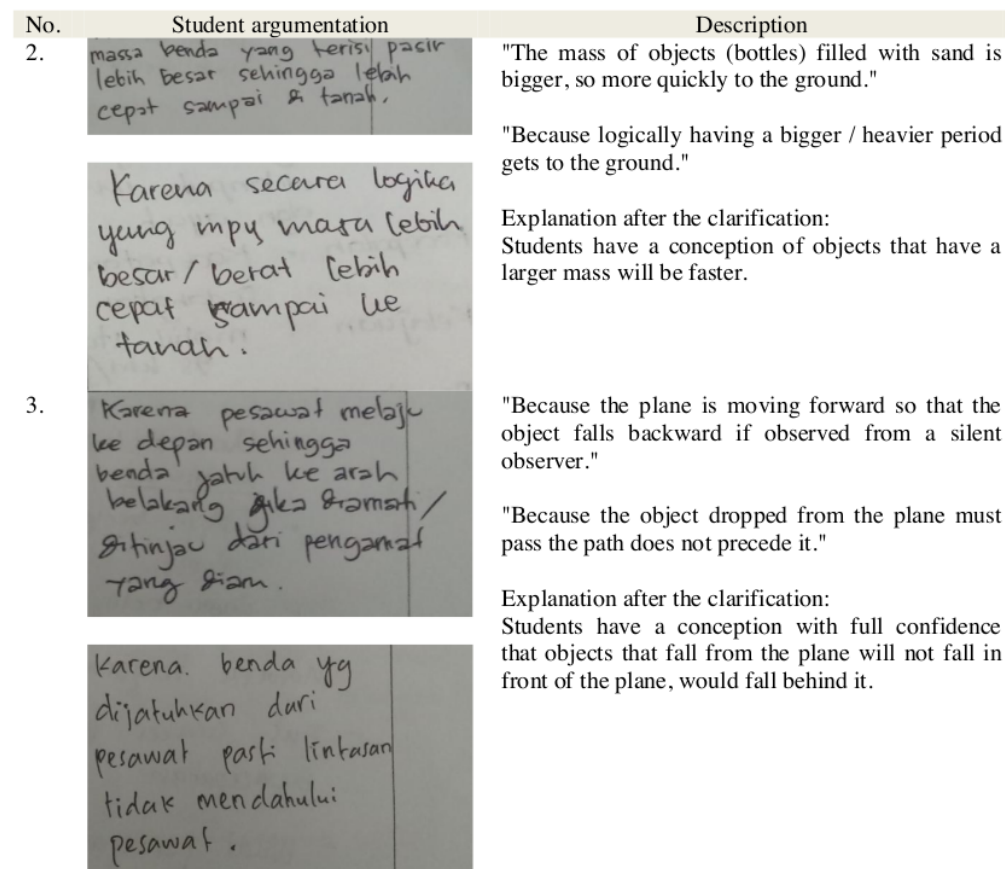 No. Student argumentation Description
2.
massa benda yang terisi pasir
lebih besar sehingga lebih
cepat sampai di tanah.
Karena secara logika
yang mpy masa lebih
besar / berat lebih
cepat sampai ke
tanah.
"The mass of objects (bottles) filled with sand is
bigger, so more quickly to the ground."
"Because logically having a bigger / heavier period
gets to the ground."
Explanation after the clarification:
Students have a conception of objects that have a
larger mass will be faster.
3.
Karena pesawat melaju
ke depan sehingga
benda jatuh ke arah
belakang jika diamati /
ditinjau dari pengamat
yang diam.
Karena. benda yg
dijatuhkan dari
pesawat pasti lintasan
tidak mendahului
pesawat.
"Because the plane is moving forward so that the
object falls backward if observed from a silent
observer."
"Because the object dropped from the plane must
pass the path does not precede it."
Explanation after the clarification:
Students have a conception with full confidence
that objects that fall from the plane will not fall in
front of the plane, would fall behind it.